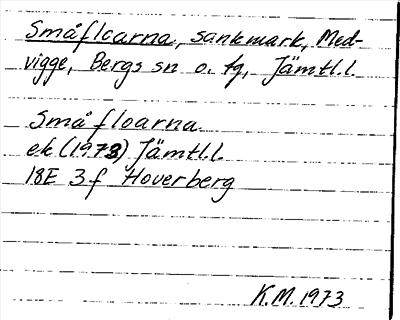 Småfloarna, sankmark, Med-
vigge, Bergs sn o. tg, Jämtl.l.
Småfloarna
ek (1973) Jämtl.l.
18E 3f Hoverberg
K.M. 1973